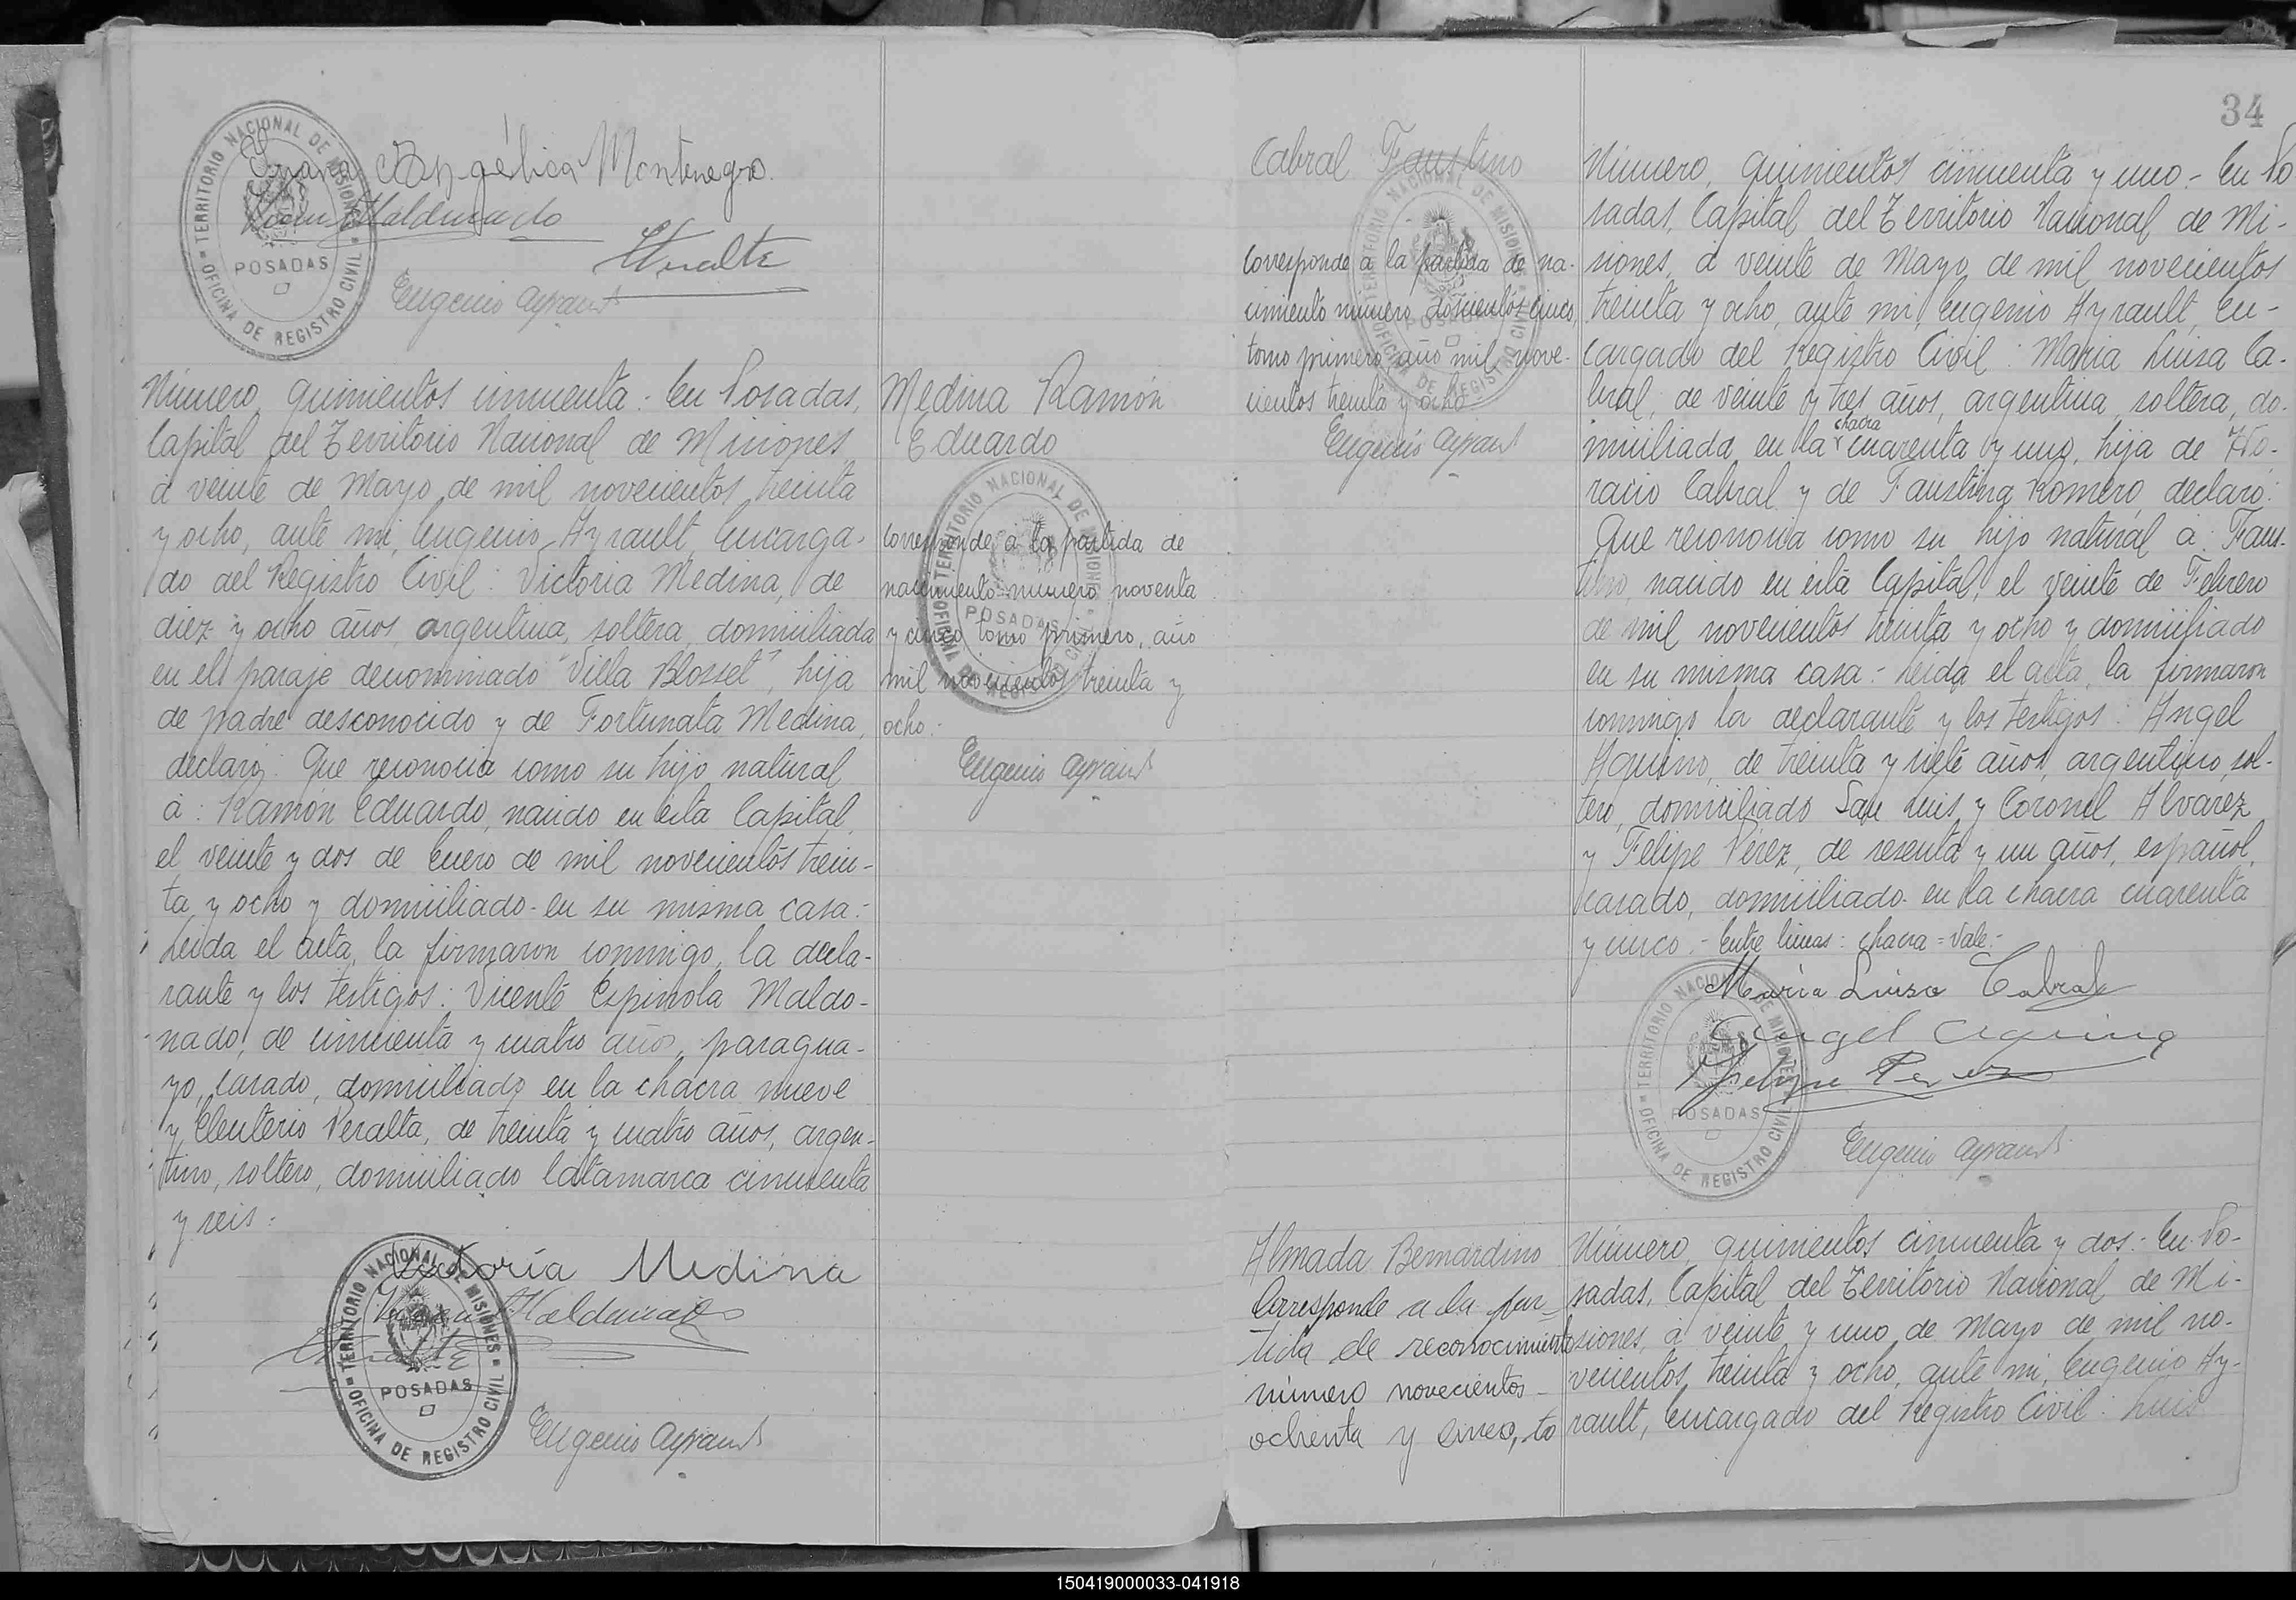 Juana Angélica Montenegro.
Vicente Maldonado
EPeralta
Eugenio Ayrault
TERRITORIO NACIONAL DE MISIONES
POSADAS
OFICINA DE REGISTRO CIVIL
Número, quinientos cincuenta.- En Posadas,
Capital del Territorio Nacional de Misiones,
á veinte de Mayo de mil novecientos treinta
y ocho, ante mi, Eugenio Ayrault, Encarga-
do del Registro Civil: Victoria Medina, de
diez y ocho años, argentina, soltera, domiciliada
en el paraje denominado "Villa Blosset", hija
de padre desconocido y de Fortunata Medina,
declaró: Que reconocía como su hijo natural
á: Ramón Eduardo, nacido en esta Capital,
el veinte y dos de Enero de mil novecientos trein-
ta y ocho y domiciliado en su misma casa.-
Leida el acta, la firmaron conmigo, la decla-
rante y los testigos: Vicente Espinola Maldo-
nado, de cincuenta y cuatro años, paragua-
yo, casado, domiciliado en la chacra nueve
y Eleuterio Peralta, de treinta y cuatro años, argen-
tino, soltero, domiciliado Catamarca cincuenta
y seis.-
Victoria Medina
Vicente Maldonado
EPeralta
Eugenio Ayrault
TERRITORIO NACIONAL DE MISIONES
POSADAS
OFICINA DE REGISTRO CIVIL
Medina Ramón
Eduardo
Corresponde á la partida de
nacimiento numero noventa
y cinco tomo primero, año
mil novecientos treinta y
ocho.-
Eugenio Ayrault
TERRITORIO NACIONAL DE MISIONES
POSADAS
OFICINA DE REGISTRO CIVIL
34
Cabral Faustino
Corresponde á la partida de na-
cimiento numero doscientos cinco,
tomo primero, año mil nove-
cientos treinta y ocho
Eugenio Ayrault
TERRITORIO NACIONAL DE MISIONES
POSADAS
OFICINA DE REGISTRO CIVIL
Número, quinientos cincuenta y uno.- En Po-
sadas, Capital del Territorio Nacional de Mi-
siones, á veinte de Mayo de mil novecientos
treinta y ocho, ante mi, Eugenio Ayrault, En-
cargado del Registro Civil: Maria Luisa Ca-
bral, de veinte y tres años, argentina, soltera, do-
miciliada en la chacra cuarenta y uno, hija de Ho-
racio Cabral y de Faustina Romero, declaró:
Que reconocia como su hijo natural á: Faus-
tino, nacido en esta Capital, el veinte de Febrero
de mil novecientos treinta y ocho y domiciliado
en su misma casa.- Leida el acta, la firmaron
conmigo la declarante y los testigos: Angel
Aquino, de treinta y siete años, argentino, sol-
tero, domiciliado San Luis y Coronel Alvarez
y Felipe Pérez, de sesenta y un años, español,
casado, domiciliado en la chacra cuarenta
y cinco.- Entre lineas: chacra = Vale.-
Maria Luisa Cabral
Angel Aquino
Felipe Perez
Eugenio Ayrault
TERRITORIO NACIONAL DE MISIONES
POSADAS
OFICINA DE REGISTRO CIVIL
Almada Bernardino
Corresponde a la par-
tida de reconocimiento
número novecientos
ochenta y cinco, to
Número, quinientos cincuenta y dos.- En Po-
sadas, Capital del Territorio Nacional de Mi-
siones, á veinte y uno de Mayo de mil no-
vecientos, treinta y ocho, ante mi, Eugenio Ay-
rault, Encargado del Registro Civil: Luis
150419000033-041918